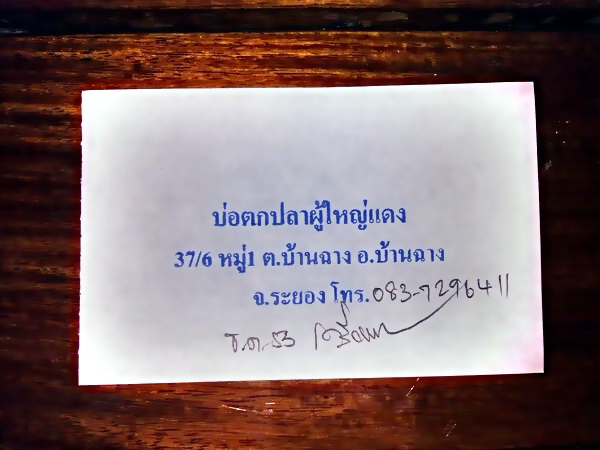 บ่อตกปลาผู้ใหญ่แดง
37/6 หมู่1 ต.บ้านฉาง อ.บ้านฉาง
จ.ระยอง โทร.083-7296411
ธ.ค.-53